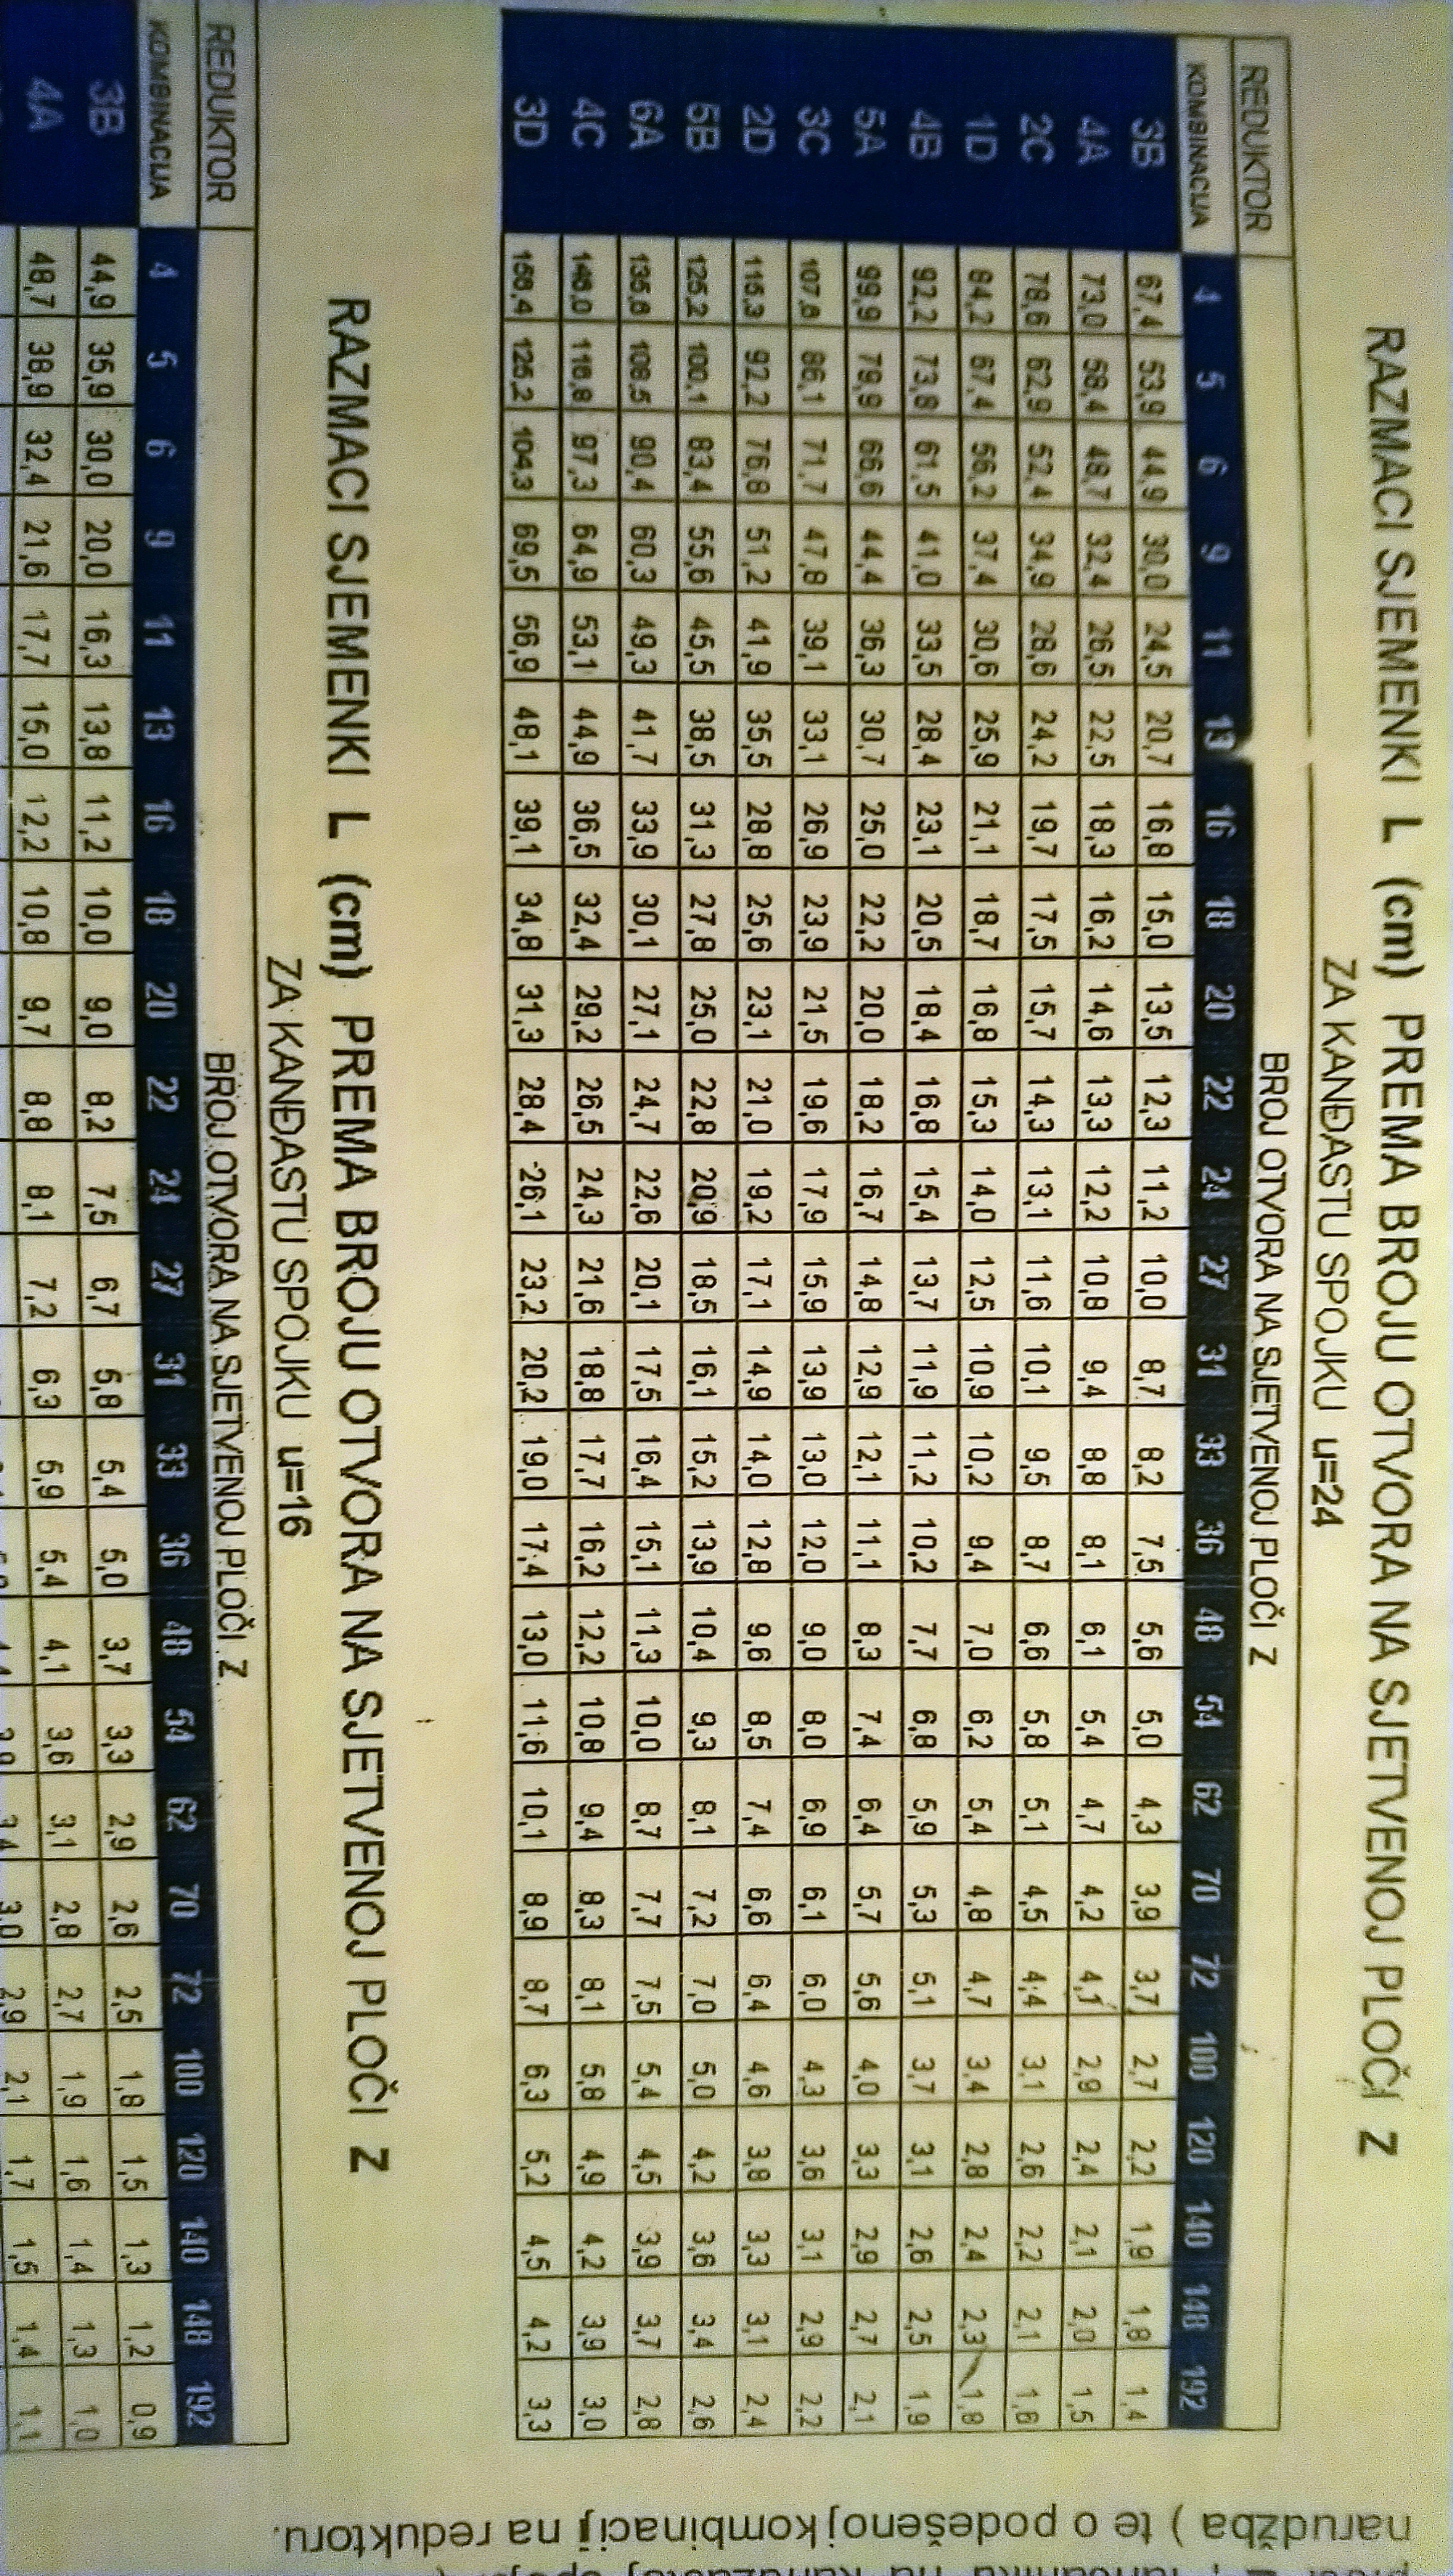 RAZMACI SJEMENKI L (cm) PREMA BROJU OTVORA NA SJETVENOJ PLOČI Z
ZA KANĐASTU SPOJKU u=24
REDUKTOR BROJ OTVORA NA SJETVENOJ PLOČI Z
KOMBINACIJA 4 5 6 9 11 13 16 18 20 22 24 27 31 33 36 48 54 62 70 72 100 120 140 148 192
3B 67,4 53,9 44,9 30,0 24,5 20,7 16,8 15,0 13,5 12,3 11,2 10,0 8,7 8,2 7,5 5,6 5,0 4,3 3,9 3,7 2,7 2,2 1,9 1,8 1,4
4A 73,0 58,4 48,7 32,4 26,5 22,5 18,3 16,2 14,6 13,3 12,2 10,8 9,4 8,8 8,1 6,1 5,4 4,7 4,2 4,1 2,9 2,4 2,1 2,0 1,5
2C 78,6 62,9 52,4 34,9 28,6 24,2 19,7 17,5 15,7 14,3 13,1 11,6 10,1 9,5 8,7 6,6 5,8 5,1 4,5 4,4 3,1 2,6 2,2 2,1 1,6
1D 84,2 67,4 56,2 37,4 30,6 25,9 21,1 18,7 16,8 15,3 14,0 12,5 10,9 10,2 9,4 7,0 6,2 5,4 4,8 4,7 3,4 2,8 2,4 2,3 1,8
4B 92,2 73,8 61,5 41,0 33,5 28,4 23,1 20,5 18,4 16,8 15,4 13,7 11,9 11,2 10,2 7,7 6,8 5,9 5,3 5,1 3,7 3,1 2,6 2,5 1,9
5A 99,9 79,9 66,6 44,4 36,3 30,7 25,0 22,2 20,0 18,2 16,7 14,8 12,9 12,1 11,1 8,3 7,4 6,4 5,7 5,6 4,0 3,3 2,9 2,7 2,1
3C 107,6 86,1 71,7 47,8 39,1 33,1 26,9 23,9 21,5 19,6 17,9 15,9 13,9 13,0 12,0 9,0 8,0 6,9 6,1 6,0 4,3 3,6 3,1 2,9 2,2
2D 115,3 92,2 76,8 51,2 41,9 35,5 28,8 25,6 23,1 21,0 19,2 17,1 14,9 14,0 12,8 9,6 8,5 7,4 6,6 6,4 4,6 3,8 3,3 3,1 2,4
5B 125,2 100,1 83,4 55,6 45,5 38,5 31,3 27,8 25,0 22,8 20,9 18,5 16,1 15,2 13,9 10,4 9,3 8,1 7,2 7,0 5,0 4,2 3,6 3,4 2,6
6A 135,6 108,5 90,4 60,3 49,3 41,7 33,9 30,1 27,1 24,7 22,6 20,1 17,5 16,4 15,1 11,3 10,0 8,7 7,7 7,5 5,4 4,5 3,9 3,7 2,8
4C 146,0 116,8 97,3 64,9 53,1 44,9 36,5 32,4 29,2 26,5 24,3 21,6 18,8 17,7 16,2 12,2 10,8 9,4 8,3 8,1 5,8 4,9 4,2 3,9 3,0
3D 156,4 125,2 104,3 69,5 56,9 48,1 39,1 34,8 31,3 28,4 26,1 23,2 20,2 19,0 17,4 13,0 11,6 10,1 8,9 8,7 6,3 5,2 4,5 4,2 3,3
RAZMACI SJEMENKI L (cm) PREMA BROJU OTVORA NA SJETVENOJ PLOČI Z
ZA KANĐASTU SPOJKU u=16
REDUKTOR BROJ OTVORA NA SJETVENOJ PLOČI Z
KOMBINACIJA 4 5 6 9 11 13 16 18 20 22 24 27 31 33 36 48 54 62 70 72 100 120 140 148 192
3B 44,9 35,9 30,0 20,0 16,3 13,8 11,2 10,0 9,0 8,2 7,5 6,7 5,8 5,4 5,0 3,7 3,3 2,9 2,6 2,5 1,8 1,5 1,3 1,2 0,9
4A 48,7 38,9 32,4 21,6 17,7 15,0 12,2 10,8 9,7 8,8 8,1 7,2 6,3 5,9 5,4 4,1 3,6 3,1 2,8 2,7 1,9 1,6 1,4 1,3 1,0
3,0 2,9 2,1 1,7 1,5 1,4 1,1
narudžba ) te o podešenoj kombinaciji na reduktoru.